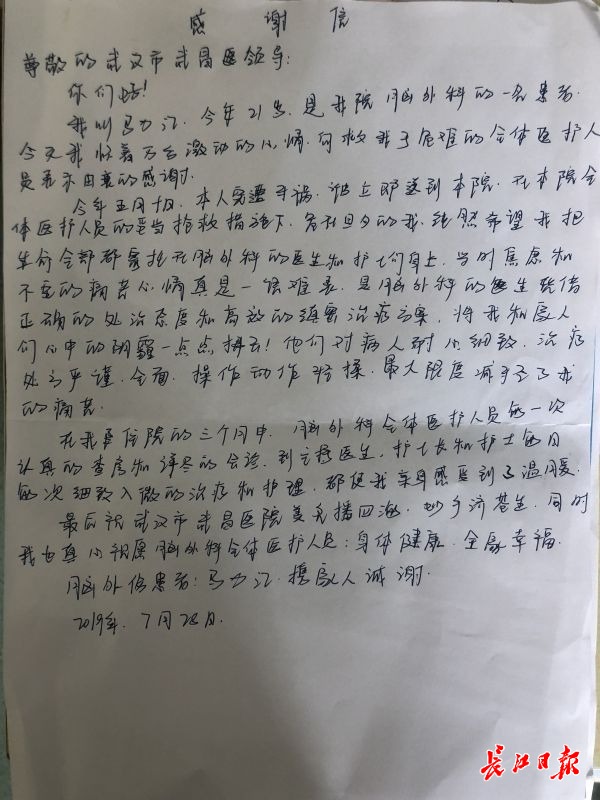 感 谢 信
尊敬的武汉市武昌医领导:
你们好!
我叫马力江. 今年21岁. 是我院脑外科的一名患者.
今天我怀着万分激动的心情. 向救我于危难的全体医护人
员表示由衷的感谢.
今年五月十日. 本人突遭车祸. 被立即送到本院. 在本院全
体医护人员的妥当抢救措施下. 危在旦夕的我. 继然希望我把
生命全部都寄托在脑外科的医生和护士们身上. 当时焦虑和
不安的痛苦心情真是一很难表. 是脑外科的医生凭借
正确的处治态度和高效的缜密治疗方案. 将我和家人
们心中的阴霾一点点拂去! 他们对病人耐心细致. 治疗
处方严谨. 全面. 操作动作轻揉. 最大限度减予了我
的痛苦.
在我易住院的三个月中. 脑外科全体医护人员每一次
认真的查房和详尽的会诊. 到主疗医生. 护士长和护士每日
每次细致入微的治疗和护理. 都使我亲身感受到了温暖.
最后祝武汉市武昌医院美名播四海. 妙手济苍生. 同时
我也真心祝愿脑外科全体医护人员: 身体健康. 全家幸福.
脑外伤患者: 马力江. 携家人诚谢.
2019年. 7月28日.
长江日报